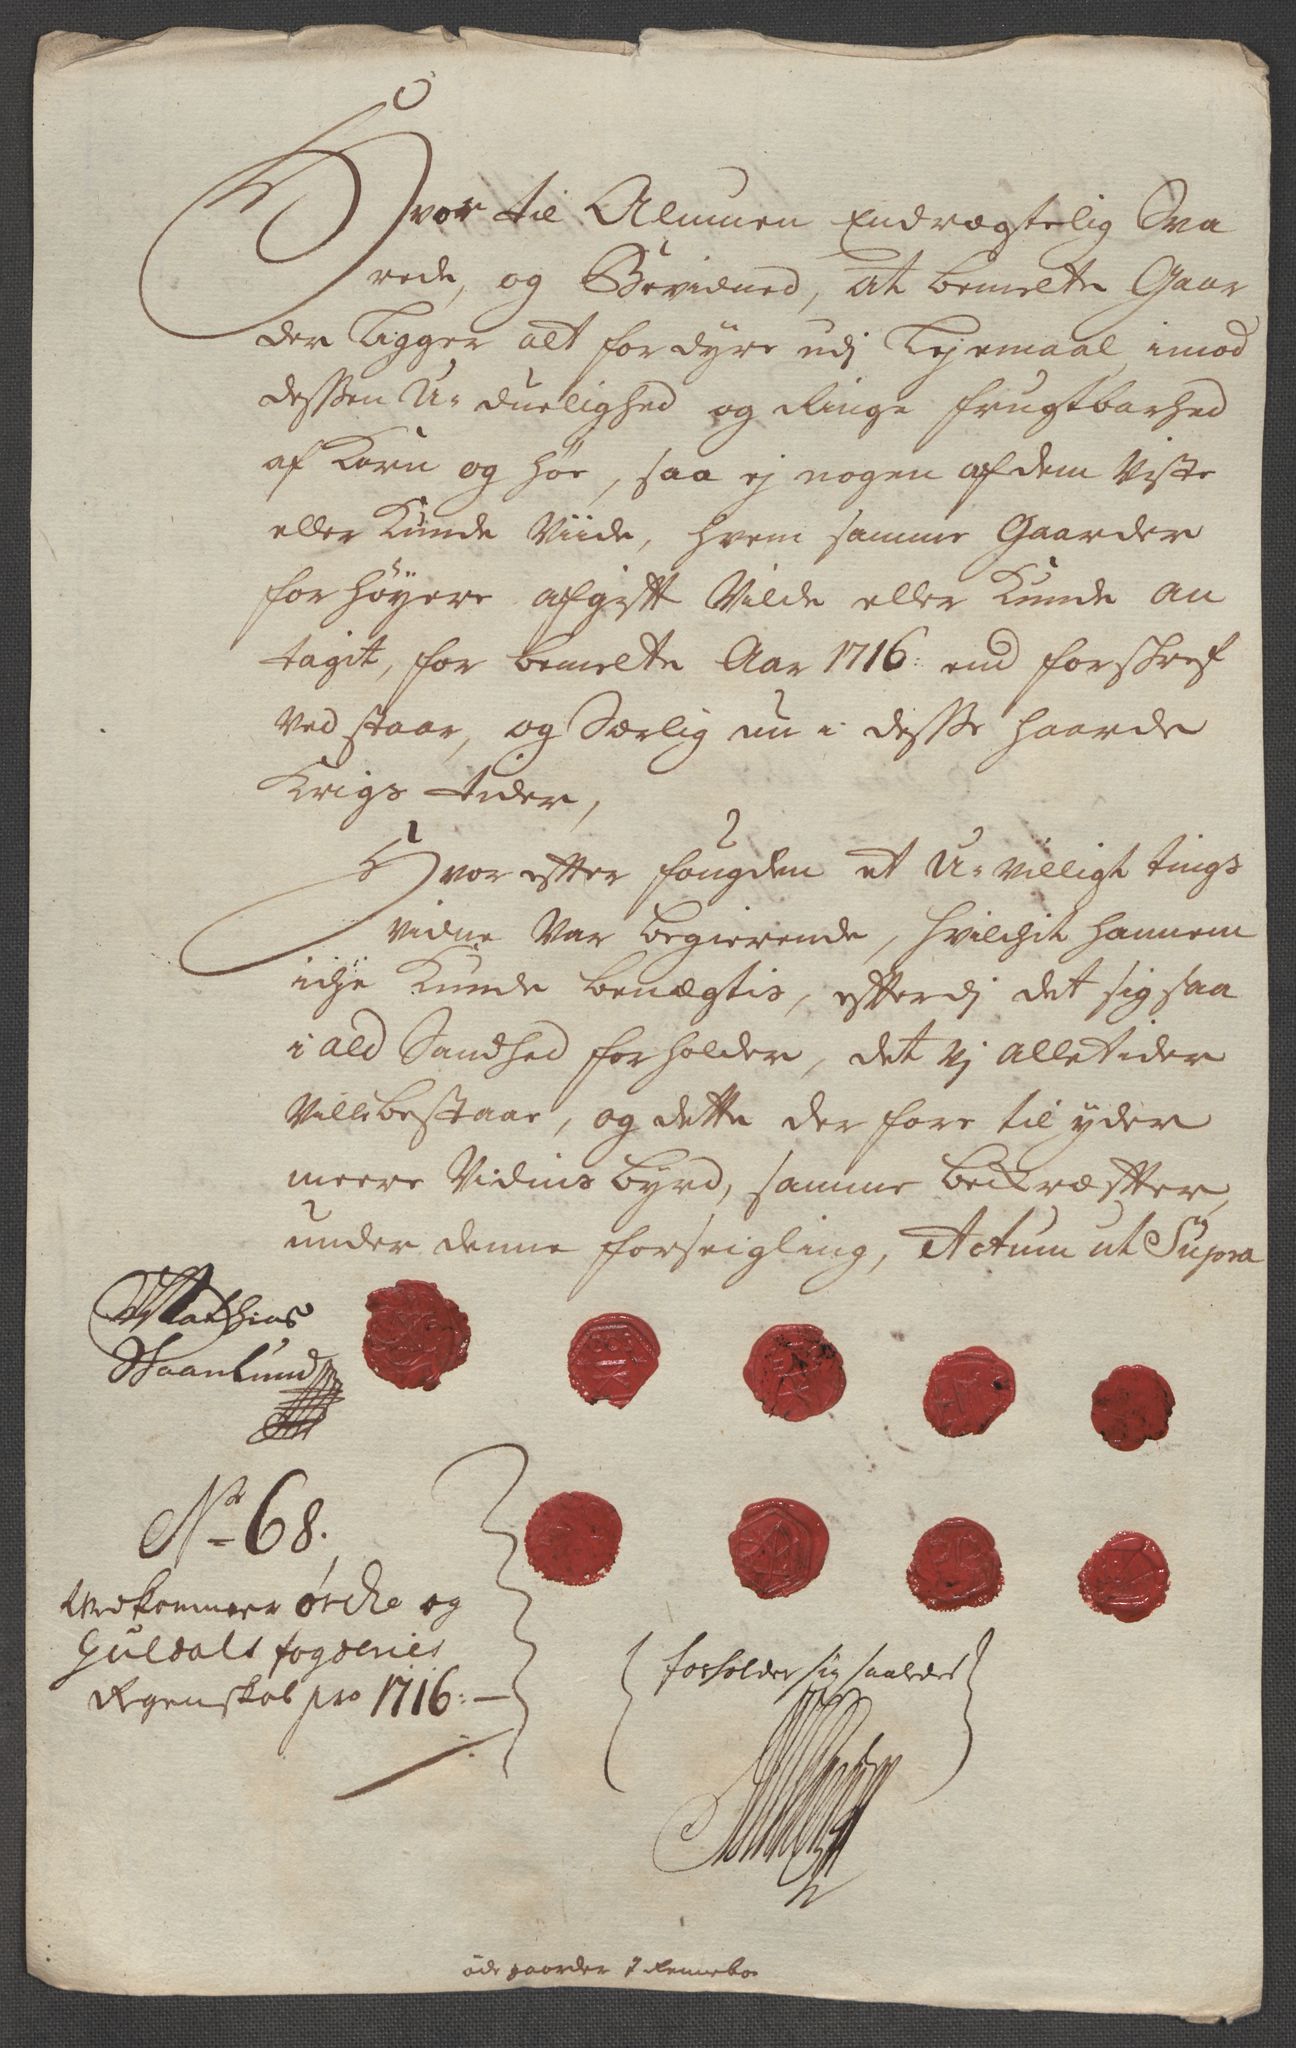 Hvor til Almuen Endrægtelig Sva
rede, og Bevidned, at bemelte Gaar
der Ligger alt for dyre udj Lejemaal imod
dessen U-duelighed og Ringe frugtbarhed
af Korn og Høe, saa ej nogen af dem Viste
eller Kunde Viide, hvem samme Gaarder
for høyere afgift Vilde eller Kunde an
tagit, for bemelte Aar 1716: end forskref
ved staar, og Særlig nu i desse haarde
Krigs tider,
Hvor effter fougden et U-villigt tings
vidne Var begierende, hvilchit hannem
iche Kunde benægtis, efterdj det sig saa
i ald Sandhed forholder, det vj alletider
Ville bestaae, og dette der fore til yder
meere Vidnis byrd, samme bekræffter,
under denne forseigling, Actum ut Supra
Mathias
Skaanlund
No 68.
Vedkommer Ørche og
Guldals fogderies
Regenskab pro 1716:
forholder sig saaledes
øde gaarder i Rennebo